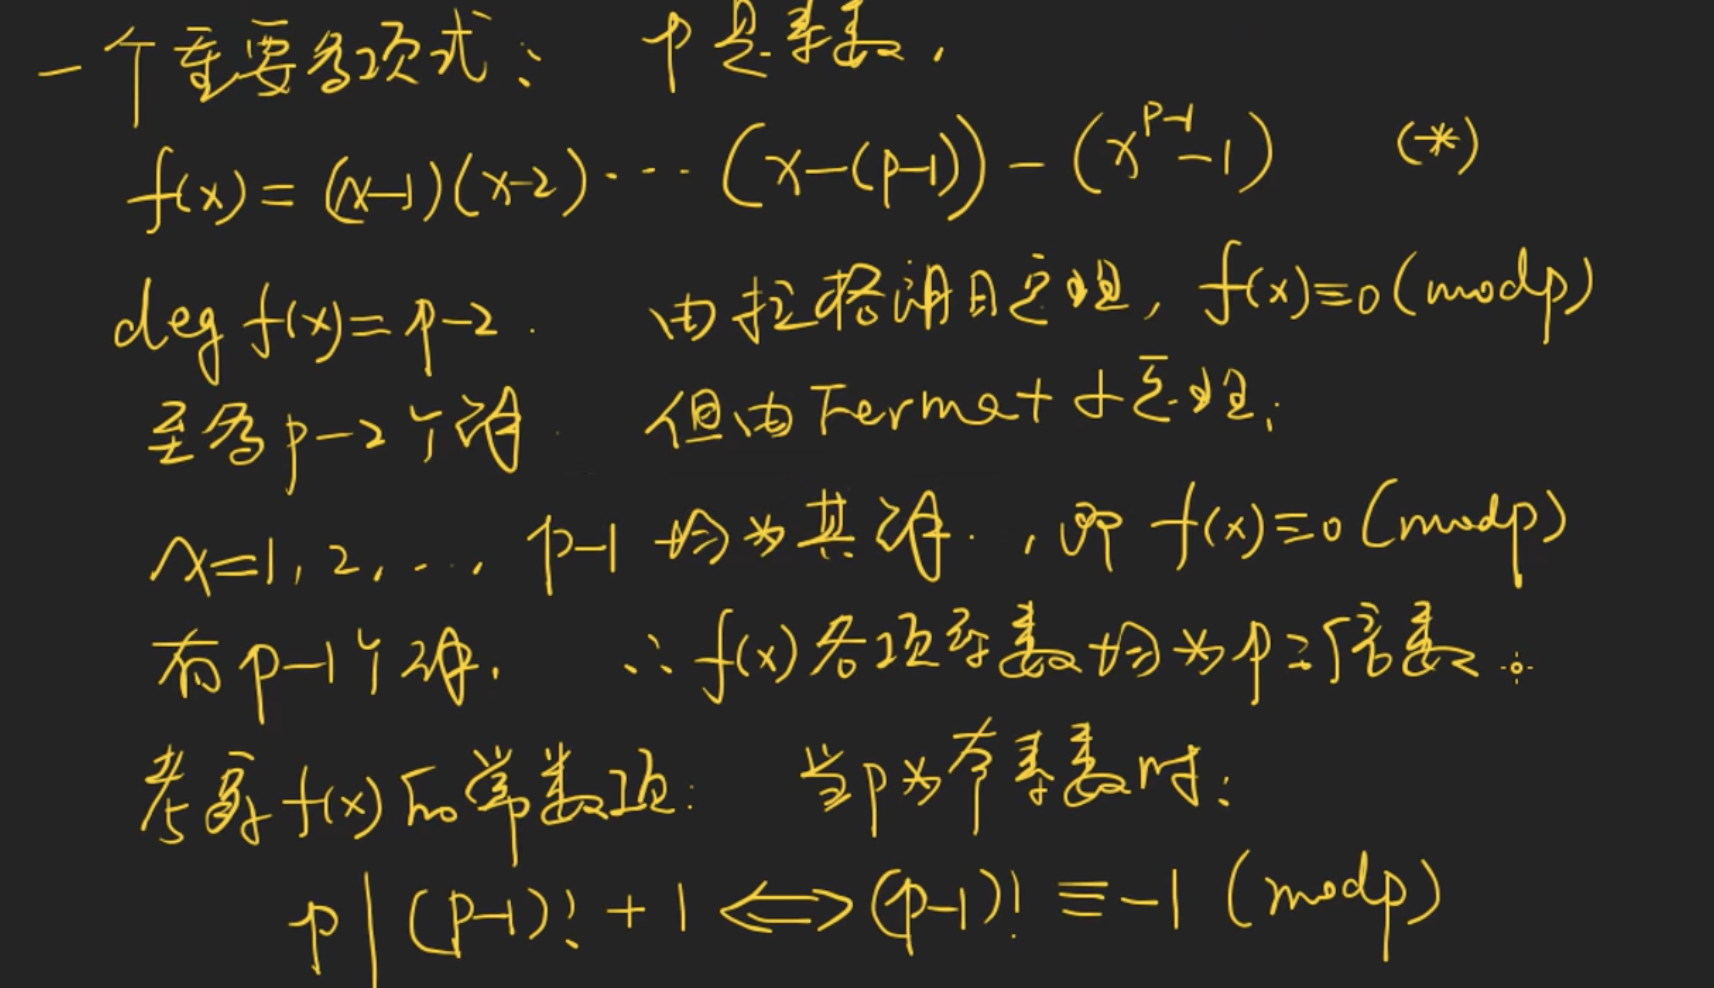 一个重要多项式: p是素数,
f(x)=(x-1)(x-2)···(x-(p-1))-(x^{p-1}-1) (*)
deg f(x)=p-2. 由拉格朗日定理, f(x)≡0(modp)
至多p-2个解. 但由Fermat小定理,
x=1,2,..., p-1 均为其解. ,即 f(x)≡0(modp)
有p-1个解. ∴f(x)各项系数均为p之倍数.
考察f(x)的常数项: 当p为奇素数时:
p|(p-1)!+1⟺(p-1)!≡-1(modp)